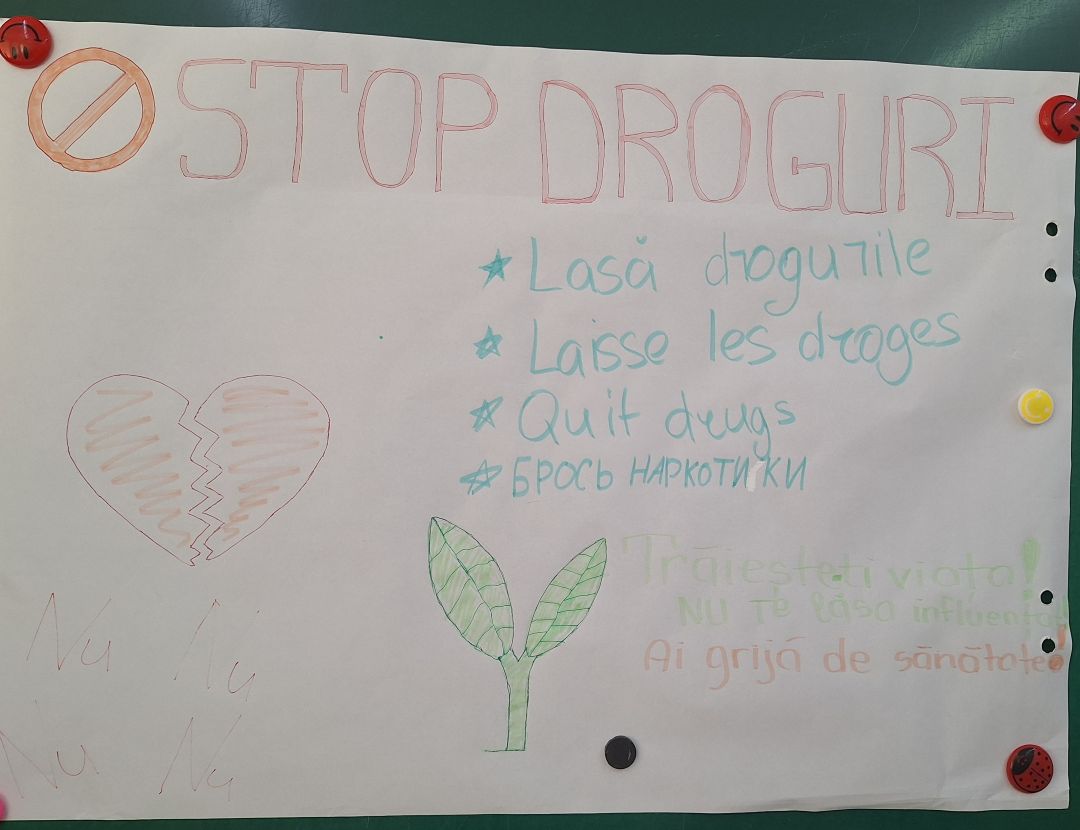 STOP DROGURI
Lasă drogurile
Laisse les droges
Quit drugs
БРОСЬ НАРКОТИКИ
Trăieșteți viața!
NU TE lăsa influența!
Ai grijă de sănătate!
Nu Nu
Nu Nu